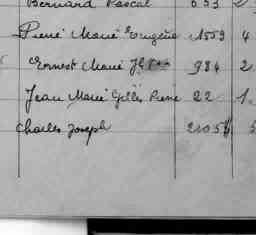 Bernard Pascal 653 2
Pierre Marie Eugène 1559 4
Ernest Marie 984 2
Jean Marie Gilles Pierre 22 1
Charles Joseph 2105 5